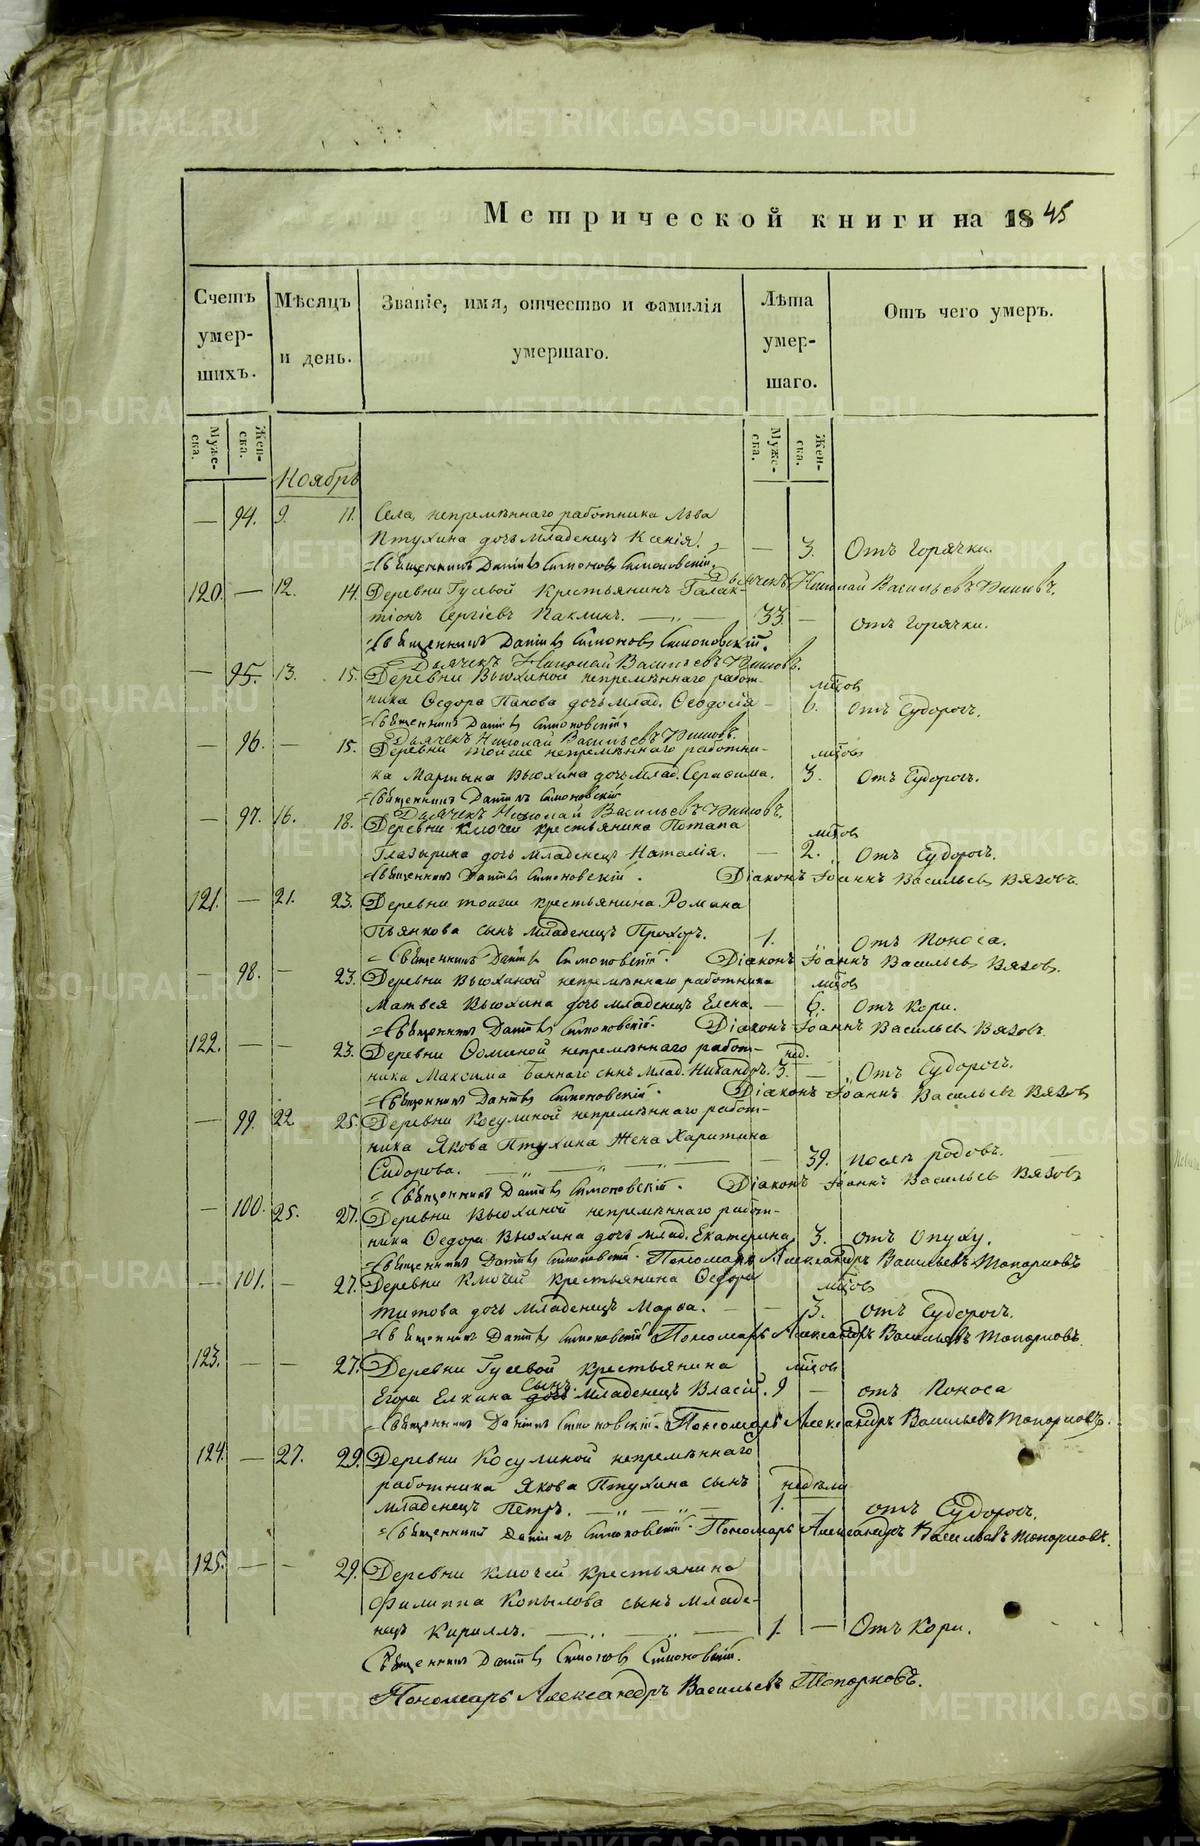 Метрической книги на 1845
Счетъ умер-шихъ.
Мѣсяцъ и день.
Званіе, имя, отчество и фамилія умершаго.
Лѣта умер-шаго.
Отъ чего умеръ.
Муже-ска.
Жен-ска.
Муже-ска.
Жен-ска.
Ноябрь
— 94. 9. 11. Села, непремѣннаго работника Льва
Птухина дочь младенецъ Ксенія. — 3. Отъ горячки.
Священникъ Даніилъ Симоновъ Симоновскій.
Дьячекъ Николай Васильевъ
120. — 12. 14. Деревни Гусевой крестьянинъ Галак-
тіонъ Сергіевъ Паклинъ. — „ — 33. — отъ горячки.
Священникъ Даніилъ Симоновъ Симоновскій.
Дьячекъ Николай Васильевъ
— 95. 13. 15. Деревни Вьюхиной непремѣннаго работ-
ника Ѳедора Панова дочь млад. Ѳеодосія — мѣсяцов 6. отъ судорогъ.
Священникъ Даніилъ Симоновскій.
Дьячекъ Николай Васильевъ
— 96. — 15. Деревни тойже непремѣннаго работни-
ка Мартына Вьюхина дочь млад. Серафима. 3. отъ судорогъ.
Священникъ Даніилъ Симоновскій
Дьячекъ Николай Васильевъ
— 97. 16. 18. Деревни Ключей крестьянина Потапа
Глазырина дочь младенецъ Наталія. — 2. Отъ судорогъ.
Священникъ Даніилъ Симоновскій. Діаконъ Іоаннъ Васильевъ Вязовъ.
121. — 21. 23. Деревни тойже крестьянина Романа
Пьянкова сынъ младенецъ Прохоръ. 1. Отъ поноса.
Священникъ Даніилъ Симоновскій. Діаконъ Іоаннъ Васильевъ Вязовъ.
— 98. — 23. Деревни Вьюхиной непремѣннаго работника
Матвея Вьюхина дочь младенецъ Елена. — 6. отъ кори.
Священникъ Даніилъ Симоновскій. Діаконъ Іоаннъ Васильевъ Вязовъ.
122. — — 23. Деревни Ѳоминой непремѣннаго работ- нед.
ника Максима Баннаго сынъ млад. Никандръ. 3. — Отъ судорогъ.
Священникъ Даніилъ Симоновскій. Діаконъ Іоаннъ Васильевъ Вязовъ
— 99. 22. 25. Деревни Косулиной непремѣннаго работ-
ника Якова Птухина жена Харитина
Сидорова. — „ — „ — „ — — 39. послѣ родовъ.
Священникъ Даніилъ Симоновскій. Діаконъ Іоаннъ Васильевъ Вязовъ
— 100. 25. 27. Деревни Вьюхиной непремѣннаго работ-
ника Ѳедора Вьюхина дочь млад. Екатерина, 3. отъ опуху.
Священникъ Даніилъ Симоновскій. Пономарь Александръ Васильевъ Топорковъ
— 101. — 27. Деревни Ключей крестьянина Ѳедора
Титова дочь младенецъ Марѳа. — — 3. отъ судорогъ.
Священникъ Даніилъ Симоновскій Пономарь Александръ Васильевъ Топорковъ.
123. — — 27. Деревни Гусевой крестьянина
сынъ
Егора Елкина дочь младенецъ Власій. 9 — отъ поноса
Священникъ Даніилъ Симоновскій. Пономарь Александръ Васильевъ Топорковъ.
124. — 27. 29. Деревни Косулиной непремѣннаго
работника Якова Птухина сынъ недѣли
младенецъ Петръ. — „ — „ — 1. — отъ судорогъ.
Священникъ Даніилъ Симоновскій. Пономарь Александръ Васильевъ Топорковъ.
125. — — 29. Деревни Ключей крестьянина
Филиппа Копылова сынъ младе-
нецъ Кириллъ. — „ — „ — 1. — Отъ кори.
Священникъ Даніилъ Симоновъ Симоновскій.
Пономарь Александръ Васильевъ Топорковъ.
METRIKI.GASO-URAL.RU